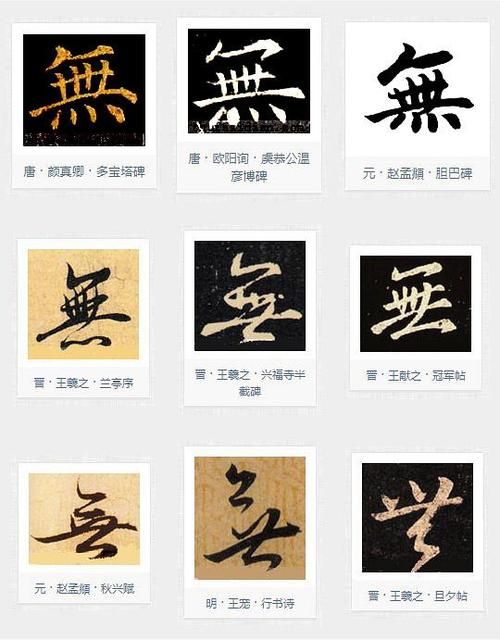 無
無
無
唐·颜真卿·多宝塔碑
唐·欧阳询·虞恭公温
彦博碑
元·赵孟頫·胆巴碑
無
無
無
晋·王羲之·兰亭序
晋·王羲之·兴福寺半
截碑
晋·王献之·冠军帖
無
無
無
元·赵孟頫·秋兴赋
明·王宠·行书诗
晋·王羲之·旦夕帖